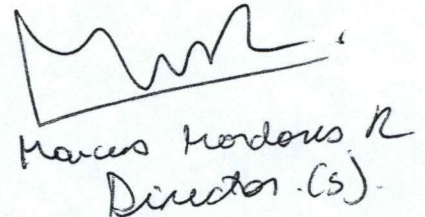 Marcos Mardones R
Director (S).